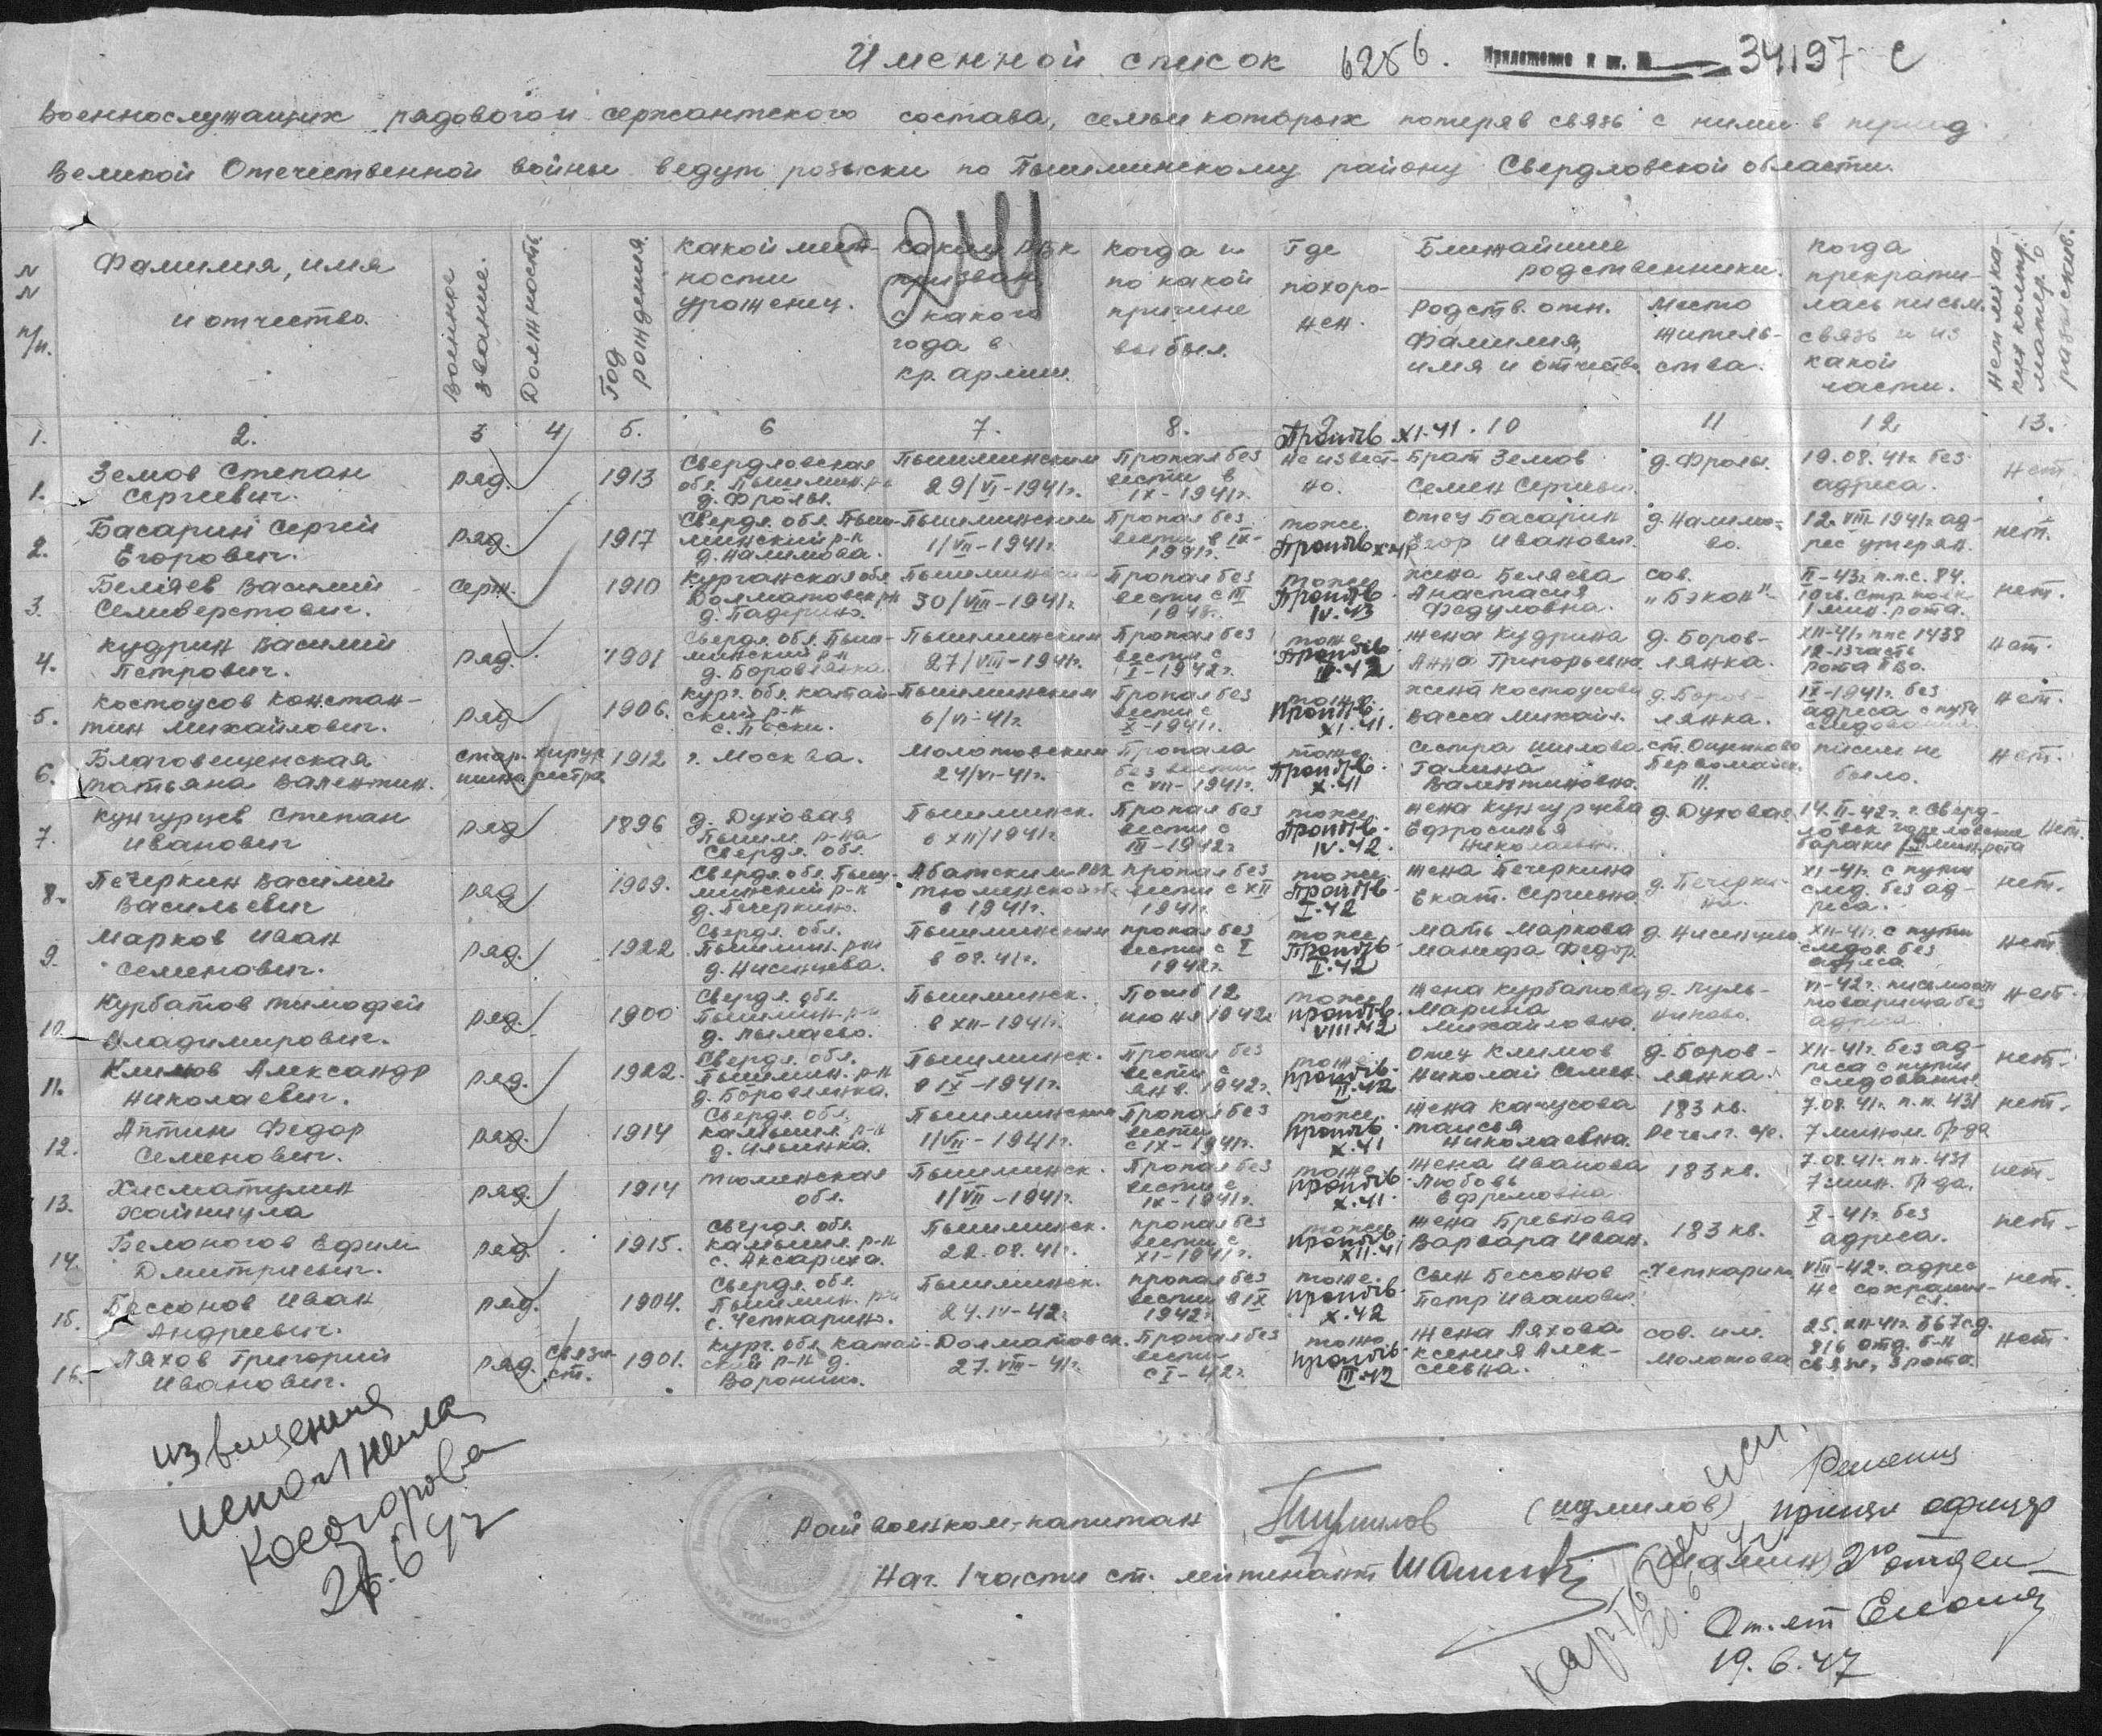 Именной список 6286. Приложение к вх. № 34197 с
Военнослужащих рядового и сержантского состава, семьи которых потеряв связь с ними в период
Великой Отечественной войны ведут розыски по Пышминскому району Свердловской области.
241
№ № п/п.
Фамилия, имя и отчество.
Военное звание.
Должность.
Год рождения.
Какой мест- ности уроженец.
Каким РВК призван, с какого года в кр. армии.
Когда и по какой причине выбыл.
Где похоро- нен.
Ближайшие родственники.
Родств. отн. Фамилия, имя и отчество
Место житель- ства.
Когда прекрати- лась письм. связь и из какой части.
Нет ли ка- ких компр. матер. о разыскив.
1. 2. 3 4 5. 6 7. 8. 9 10 11 12 13.
1. Земов Степан Сергеевич. ряд. 1913 Свердловская обл. Пышмин. р-н д. Фролы. Пышминским 29/VI-1941г. Пропал без вести в IX-1941г. неизвест- но. Проптв. XI.41. Брат Земов Семен Сергеевич. д. Фролы. 19.08.41г. без адреса. нет.
2. Басарин Сергей Егорович. ряд. 1917 Свердл. обл. Пыш- минский р-н д. Налимова. Пышминским 1/VII-1941г. Пропал без вести в IX- 1941г. тоже. Проптв Отец Басарин Егор Иванович. д. Налимо- во. 12. VIII. 1941г. ад- рес утерян. нет.
3. Беляев Василий Селиверстович. серж. 1910 Курганская обл. Долматовск. рн д. Падерино. Пышминским 30/VIII-1941г. Пропал без вести с III тоже Проптв IV.43 жена Беляева Анастасия Федуловна. сов. „Бэкон" II-43г. п.п.с. 84. 10 гв. стр. полк 1 мин. рота. нет.
4. Кудрин Василий Петрович. ряд. 1901 Свердл. обл. Пыш- минский р-н д. Боровлянка. Пышминским 27/VIII-1941г. Пропал без вести с I-1942г. тоже. Проптв жена Кудрина Анна Григорьевна д. Боров- лянка. XII-41г. ппс 1438 12-13 часть рота нет.
5. Костоусов Констан- тин Михайлович. ряд 1906. Кург. обл. Катай- ский р-н с. Пески. Пышминским 6/VI-41г. Пропал без вести с X-1941г. тоже. Проптв. XI.41. жена Костоусова Васса Михайл. д. Боров- лянка. IX-1941г. без адреса с пути следования. нет.
6. Благовещенская Татьяна Валентин. стар. хирур сестра 1912 г. Москва. Молотовским 24/VI-41г. Пропала без вести с VII-1941г. тоже Проптв. X.41 Сестра Шилова Галина Валентиновна. ст. Ощепково Первомайск. 11. писем не было. нет.
7. Кунгурцев Степан Иванович ряд 1896 д. Духовая Пышм. р-на Свердл. обл. Пышминск. в XII/1941г. Пропал без вести с III-1942г. тоже Проптв. IV.42. жена Кунгурцева Ефросинья Николаевн. д. Духовая 14.II-42г. г. Сверд- ловск бараки нет.
8. Печеркин Василий Васильевич ряд 1909. Свердл. обл. Пыш- минский р-н д. Печеркино. Абатским РВК Тюменской об. в 1941г. пропал без вести с XII 1941г. тоже. Проптв. I.42 жена Печеркина Екат. Сергеевна д. Печерки- но. XI-41г. с пути след. без ад- реса. нет.
9. Марков Иван Семенович. ряд. 1922 Свердл. обл. Пышмин. р-н д. Нисенцева. Пышминским в 08.41г. пропал без вести с I 1942г. тоже Проптв. II.42 мать Маркова Манефа Федор. д. XII-41г. с пути следов. без адреса нет.
10. Курбатов Тимофей Владимирович. ряд. 1900 Свердл. обл. Пышмин. р-н д. Пылаево. Пышминск. в XII-1941г. Погиб 12 июня 1942г тоже Проптв. VIII.42 жена Курбатова Марина Михайловна. д. Пуль- никово. VI-42г. письмо от товарища без адреса нет.
11. Климов Александр Николаевич. ряд. 1922. Свердл. обл. Пышмин. р-н д. Боровлянка. Пышминск. в IX-1941г. Пропал без вести с янв. 1942г. тоже Проптв. II.42 Отец Климов Николай Семен. д. Боров- лянка. XII-41г. без ад- реса с пути следования нет.
12. Аптин Федор Семенович. ряд. 1914 Свердл. обл. Камышл. р-н д. Ильинка. Пышминским 1/VII-1941г. Пропал без вести с IX-1941г. тоже. Проптв. X.41 жена Качусова Таисья Николаевна. 183 кв. 7.08.41г. п.п. 431 7 мином. бр-да нет.
13. Хисматулин Хайнигула ряд. 1914 Тюменская обл. Пышминск. 1/VII-1941г. Пропал без вести с IX-1941г. тоже Проптв. X.41. жена Иванова Любовь Ефимовна 183 кв. 7.08.41г. п.п. 431 7 мин. бр-да. нет.
14. Белоногов Ефим Дмитриевич. ряд. 1915. Свердл. обл. Камышл. р-н с. Аксариха. Пышминск. 22.08.41г. пропал без вести с XI-1941г. тоже Проптв. XII.41 жена Бревнова Варвара Иван. 183 кв. X-41г. без адреса. нет.
15. Бессонов Иван Андреевич. ряд. 1904. Свердл. обл. Пышмин. р-н с. Четкарино. Пышминск. 24.IV-42г. пропал без вести в IX 1942г. тоже. Проптв. X.42 Сын Бессонов Петр Иванович. с. Четкарино VIII-42г. адрес не сохранил- ся. нет.
16. Ляхов Григорий Иванович. ряд. связи- ст. 1901. Кург. обл. Катай- ский р-н д. Воронино. Долматовск. 27.VIII-41г. Пропал без вести с I-42г. тоже Проптв. III.42 жена Ляхова Ксения Алек- сеевна. сов. им. Молотова 25.XII-41г. 367 сд. 816 отд. б-н связи, 3 рота. нет.
извещения
исполнила
Косогорова
21.6.47г
Райвоенком-капитан Шумилов (Шумилов)
Нач. 1 части ст. лейтенант
Решения
принял офицер
2го отдел
От. лет
19.6.47